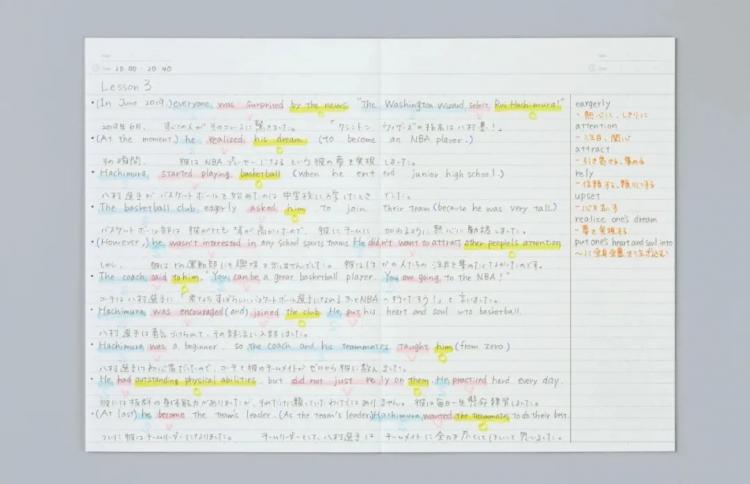 20:00 - 20:40
Lesson 3
• (In June 2019,) everyone was surprised by the news. "The Washington Wizards select Rui Hachimura!"
2019年6月、すべての人がそのニュースに驚きました。「ワシントン ウィザーズの指名は八村塁!」
• (At the moment) he realized his dream (to become an NBA player.)
その瞬間、彼はNBAプレーヤーになるという彼の夢を実現しました。
• Hachimura started playing basketball (when he entered junior high school.)
八村選手がバスケットボールを始めたのは中学校に入学したときでした。
• The basketball club eagerly asked him to join their team (because he was very tall.)
バスケットボール部は彼がとても背が高かったので、彼にチームに加わるように熱心に勧誘しました。
• (However,) he wasn't interested in any school sports teams. He didn't want to attract other people's attention.
しかし、彼はどの運動部にも興味を示しませんでした。彼は他の人たちの注目を集めたくなかったのです。
• The coach said to him. "You can be a great basketball player. You are going to the NBA!"
コーチは八村選手に「君ならすばらしいバスケットボール選手になれる。NBAへ行くだろう!」と言いました。
• Hachimura was encouraged (and) joined the club. He put his heart and soul into basketball.
八村選手は勇気づけられて、その部活に入部しました。
• Hachimura was a beginner, so the coach and his teammates taught him (from zero)
八村選手は初心者だったので、コーチと彼のチームメイトがゼロから彼に教えました。
• He had outstanding physical abilities, but did not just rely on them. He practiced hard every day.
彼には抜群の身体能力がありましたが、それだけに頼っていたわけではありません。彼は毎日一生懸命練習しました。
• (At last) he became the team's leader. (As the team's leader) Hachimura wanted the teammates to do their best.
ついに彼はチームリーダーになりました。チームリーダーとして、八村選手はチームメイトに全力を尽くしてほしいと思いました。
eargerly
- 熱心に、しきりに
attention
- 注目、関心
attract
- 引き寄せる、集める
rely
- 信頼する、頼りにする
upset
- 心を乱す
realize one's dream
- 夢を実現する
put one's heart and soul into
~に全身全霊をそそぎ込む